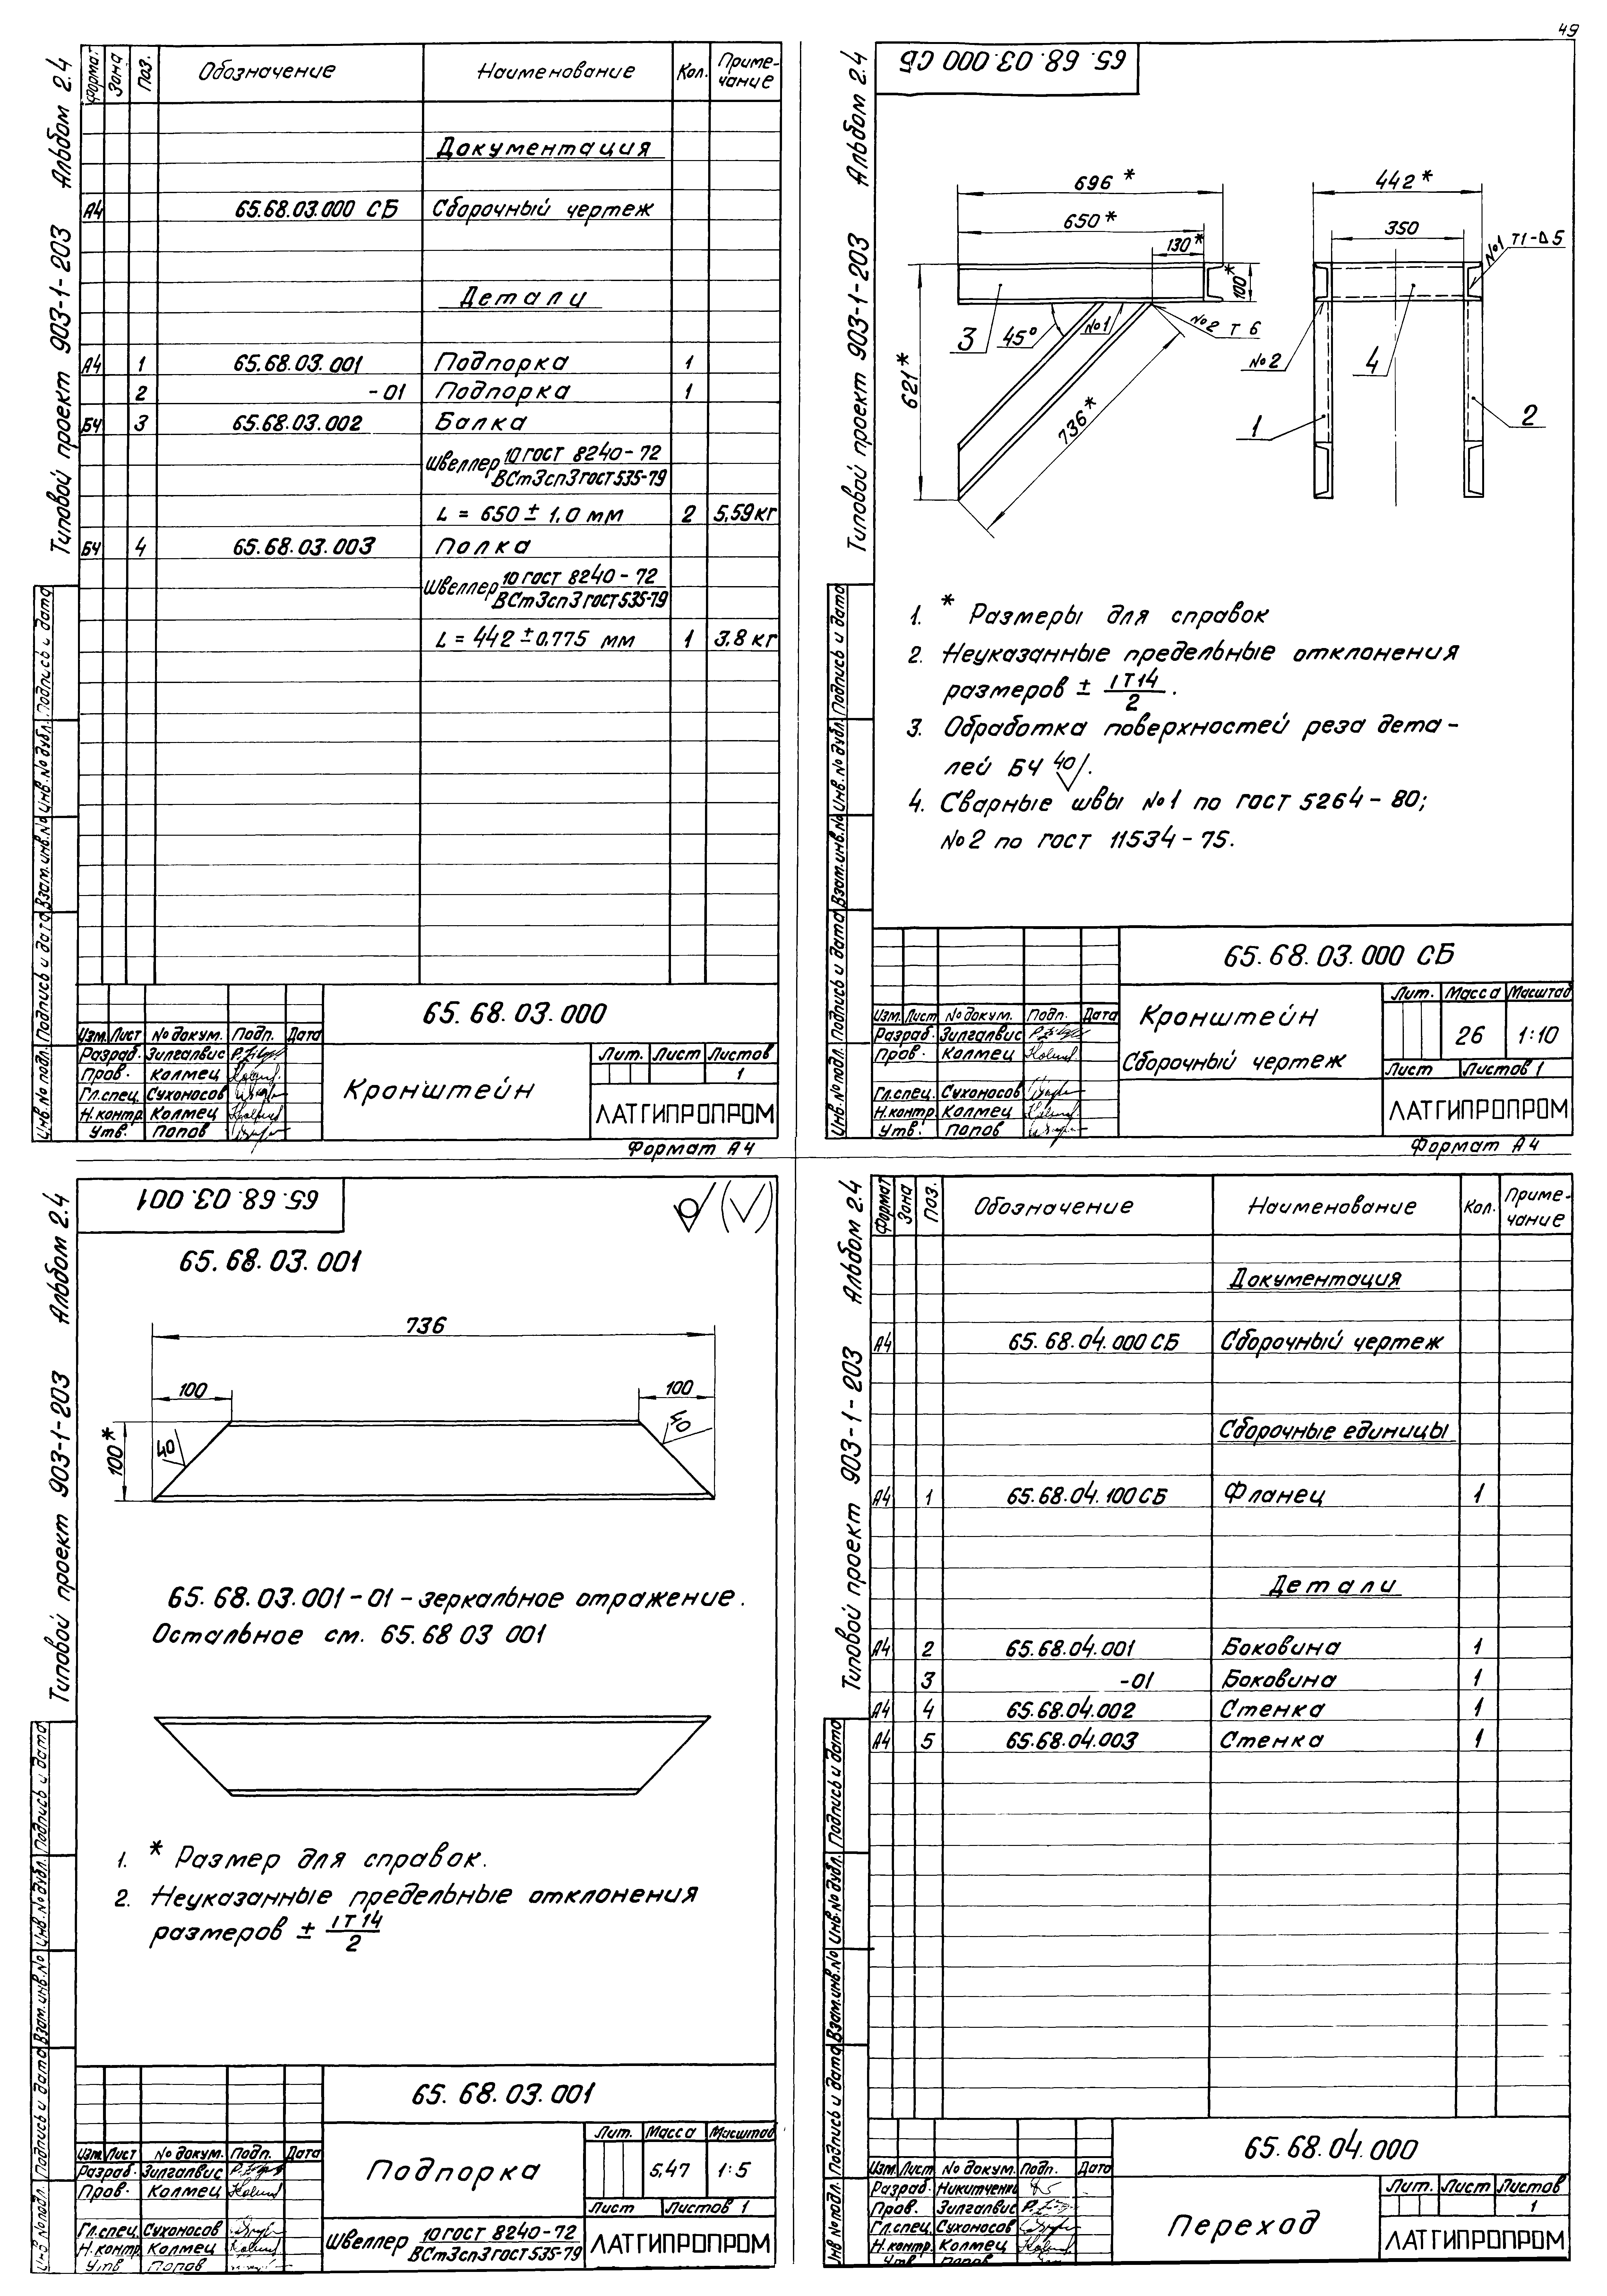 49
Альбом 2.4
Типовой проект 903-1-203
Формат Зона Поз. Обозначение Наименование Кол. Приме-
чание
Документация
А4 65.68.03.000 СБ Сборочный чертеж
Детали
А4 1 65.68.03.001 Подпорка 1
2 -01 Подпорка 1
БЧ 3 65.68.03.002 Балка
Швеллер 10 ГОСТ 8240-72
ВСт3сп3 ГОСТ 535-79
L = 650 ± 1,0 мм 2 5,59 кг
БЧ 4 65.68.03.003 Полка
Швеллер 10 ГОСТ 8240-72
ВСт3сп3 ГОСТ 535-79
L = 442 ± 0,775 мм 1 3.8 кг
Инв.№ подл. Подпись и дата Взам.инв.№ Инв.№ дубл. Подпись и дата
65.68.03.000
Изм. Лист № докум. Подп. Дата
Разраб. Зилгалвис
Пров. Колмец
Гл.спец. Сухоносов
Н.контр. Колмец
Утв. Попов
Кронштейн
Лит. Лист Листов
1
ЛАТГИПРОПРОМ
Формат А4
Альбом 2.4
Типовой проект 903-1-203
65.68.03.000 СБ
696*
650*
130*
100*
621*
45°
736*
№1
№2 Т 6
3
442*
350
№1 Т1-⊿5
№2
4
1
2
1. * Размеры для справок
2. Неуказанные предельные отклонения
размеров ± IT14
2.
3. Обработка поверхностей реза дета-
лей БЧ 40/.
4. Сварные швы №1 по ГОСТ 5264-80;
№2 по ГОСТ 11534-75.
Инв.№ подл. Подпись и дата Взам.инв.№ Инв.№ дубл. Подпись и дата
65.68.03.000 СБ
Изм. Лист № докум. Подп. Дата
Разраб. Зилгалвис
Пров. Колмец
Гл.спец. Сухоносов
Н.контр. Колмец
Утв. Попов
Кронштейн
Сборочный чертеж
Лит. Масса Масштаб
26 1:10
Лист Листов 1
ЛАТГИПРОПРОМ
Формат А4
Альбом 2.4
Типовой проект 903-1-203
65.68.03.001
65.68.03.001
736
100
100
100*
40
40
65.68.03.001-01 - зеркальное отражение.
Остальное см. 65.68 03 001
1. * Размер для справок.
2. Неуказанные предельные отклонения
размеров ± IT14
2
Инв №подл. Подпись и дата Взам.инв.№ Инв.№ дубл. Подпись и дата
65.68.03.001
Изм. Лист № докум. Подп. Дата
Разраб. Зилгалвис
Пров. Колмец
Гл.спец. Сухоносов
Н.контр. Колмец
Утв Попов
Подпорка
Лит. Масса Масштаб
5,47 1:5
Лист Листов 1
Швеллер 10 ГОСТ 8240-72
ВСт3сп3 ГОСТ 535-79
ЛАТГИПРОПРОМ
Альбом 2.4
Типовой проект 903-1-203
Формат Зона Поз. Обозначение Наименование Кол. Приме-
чание
Документация
А4 65.68.04.000 СБ Сборочный чертеж
Сборочные единицы
А4 1 65.68.04.100 СБ Фланец 1
Детали
А4 2 65.68.04.001 Боковина 1
3 -01 Боковина 1
А4 4 65.68.04.002 Стенка 1
А4 5 65.68.04.003 Стенка 1
Инв №подл. Подпись и дата Взам.инв.№ Инв.№ дубл. Подпись и дата
65.68.04.000
Изм. Лист № докум. Подп. Дата
Разраб. Никитченко
Пров. Зилгалвис
Гл.спец. Сухоносов
Н.контр. Колмец
Утв Попов
Переход
Лит. Лист Листов
1
ЛАТГИПРОПРОМ